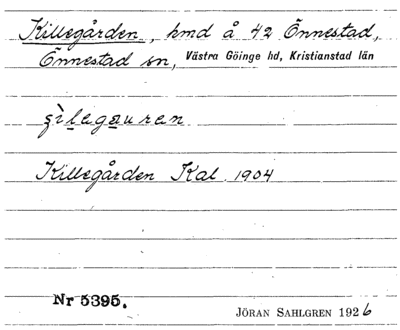 Killegården, hmd å 42 Önnestad,
Önnestad sn, Västra Göinge hd, Kristianstad län
Killegården Kal 1904
Nr 5395.
JÖRAN SAHLGREN 1926